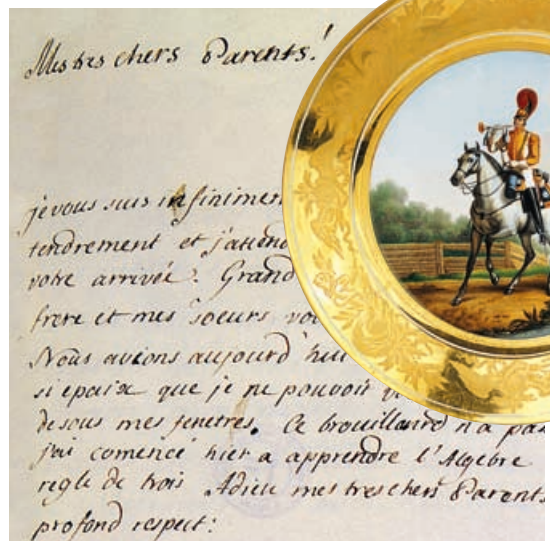 Mes tres chers Parents!
je vous suis infiniment
tendrement et j'attend
votre arrivée. Grand
frere et mes soeurs
Nous avions aujourd'hui
si epaix que je ne pouvoir
desous mes fenetres. Ce brouillard n'a pas
j'ai comencé hier a apprendre l'Algebre
regle de trois Adieu mes tres chers Parents
profond respect: